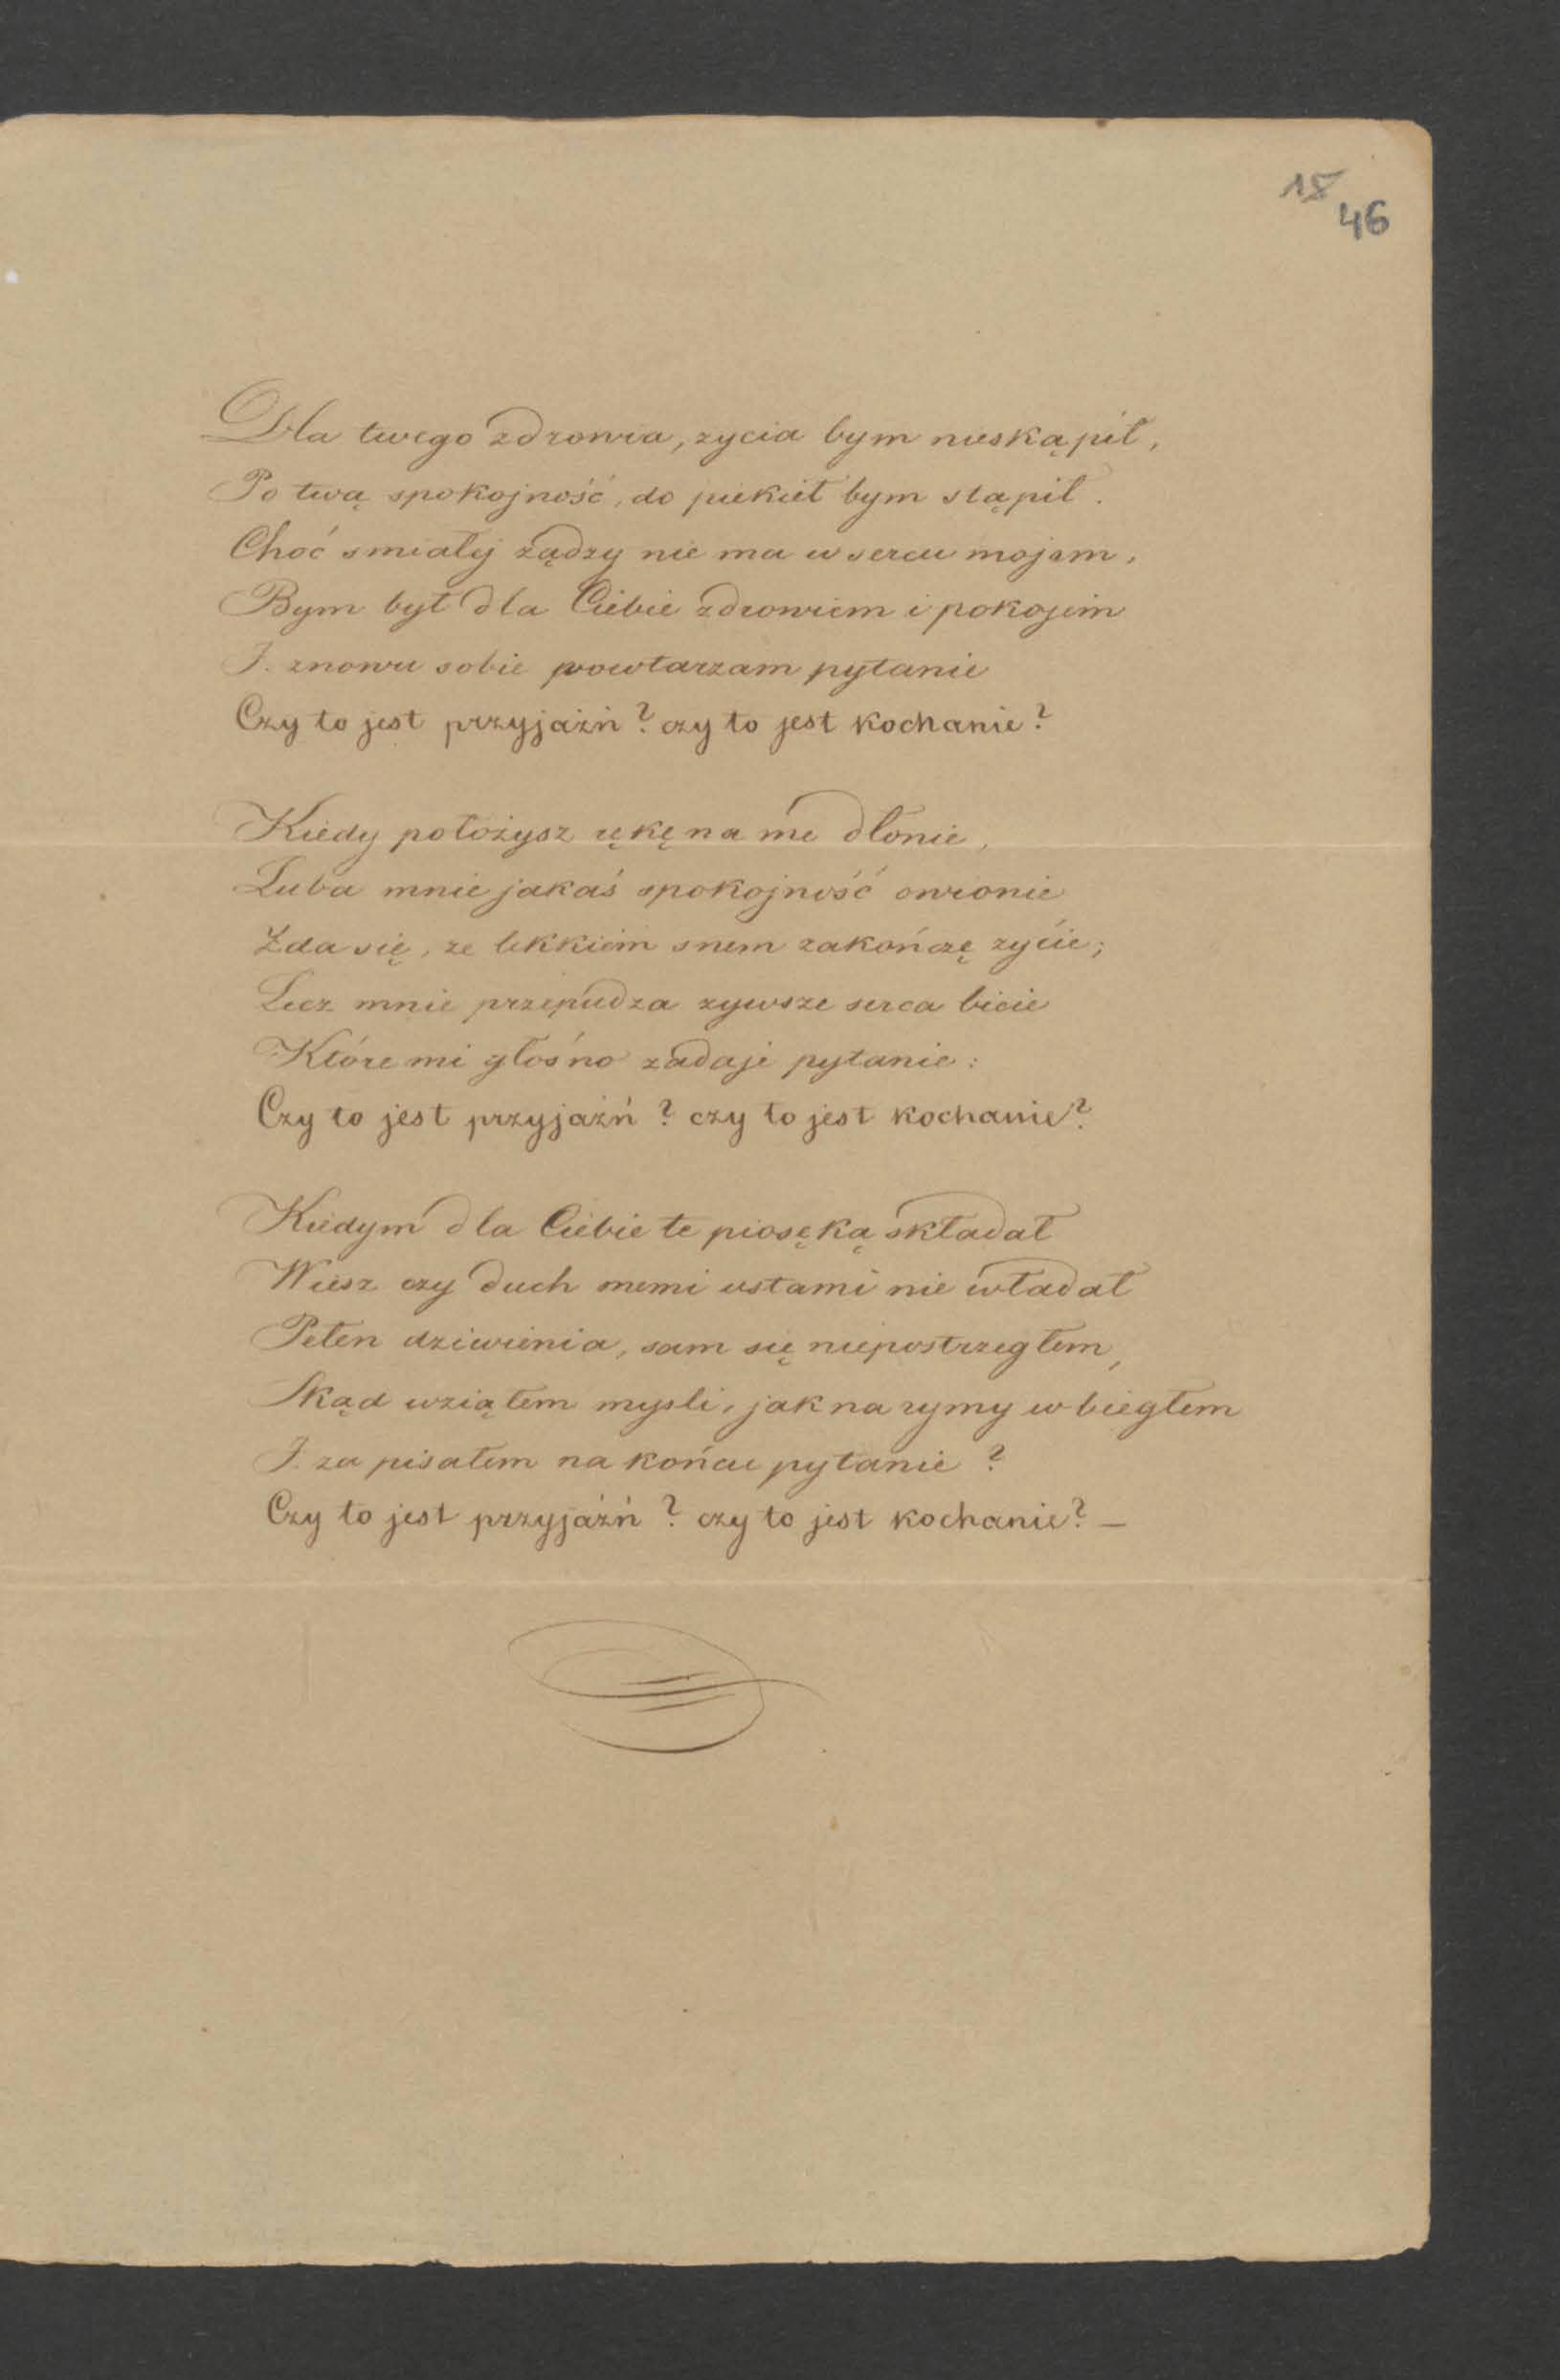 18
46
Dla twego zdrowia, zycia bym nieskąpił,
Po twą spokojność, do piekieł bym stąpił.
Choć smiałej żądzy nie ma w sercu mojem,
Bym był dla Ciebie zdrowiem i pokojem
I znowu sobie powtarzam pytanie
Czy to jest przyjaźń? czy to jest kochanie?
Kiedy położysz rękę na me dłonie,
Luba mnie jakaś spokojność owionie
Zda się, ze lekkiem snem zakończę zyćie;
Lecz mnie przepudza zywsze serca bicie
Które mi głośno zadaje pytanie:
Czy to jest przyjaźń? czy to jest kochanie?
Kiedym dla Ciebie te piosęką składał
Wiesz czy duch memi ustami nie władał
Pełen dziwienia, sam się niepostrzegłem,
Skąd wziąłem mysli, jak na rymy w biegłem
I za pisałem na końcu pytanie?
Czy to jest przyjaźń? czy to jest kochanie? —